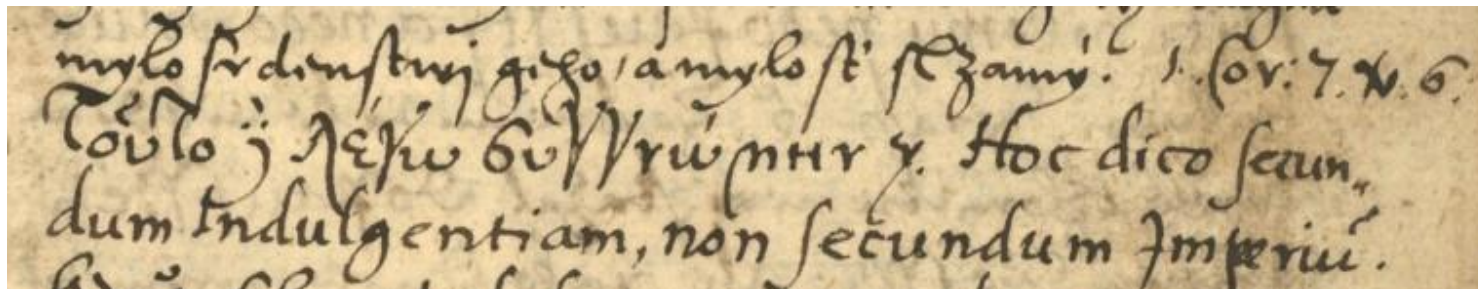 mylosrdenstwj geho, a mylost slzamy. 1. Cor: 7. v. 6.
Τοῦτο λέγω Hoc dico secun„
dum Indulgentiam, non secundum Imperiū.